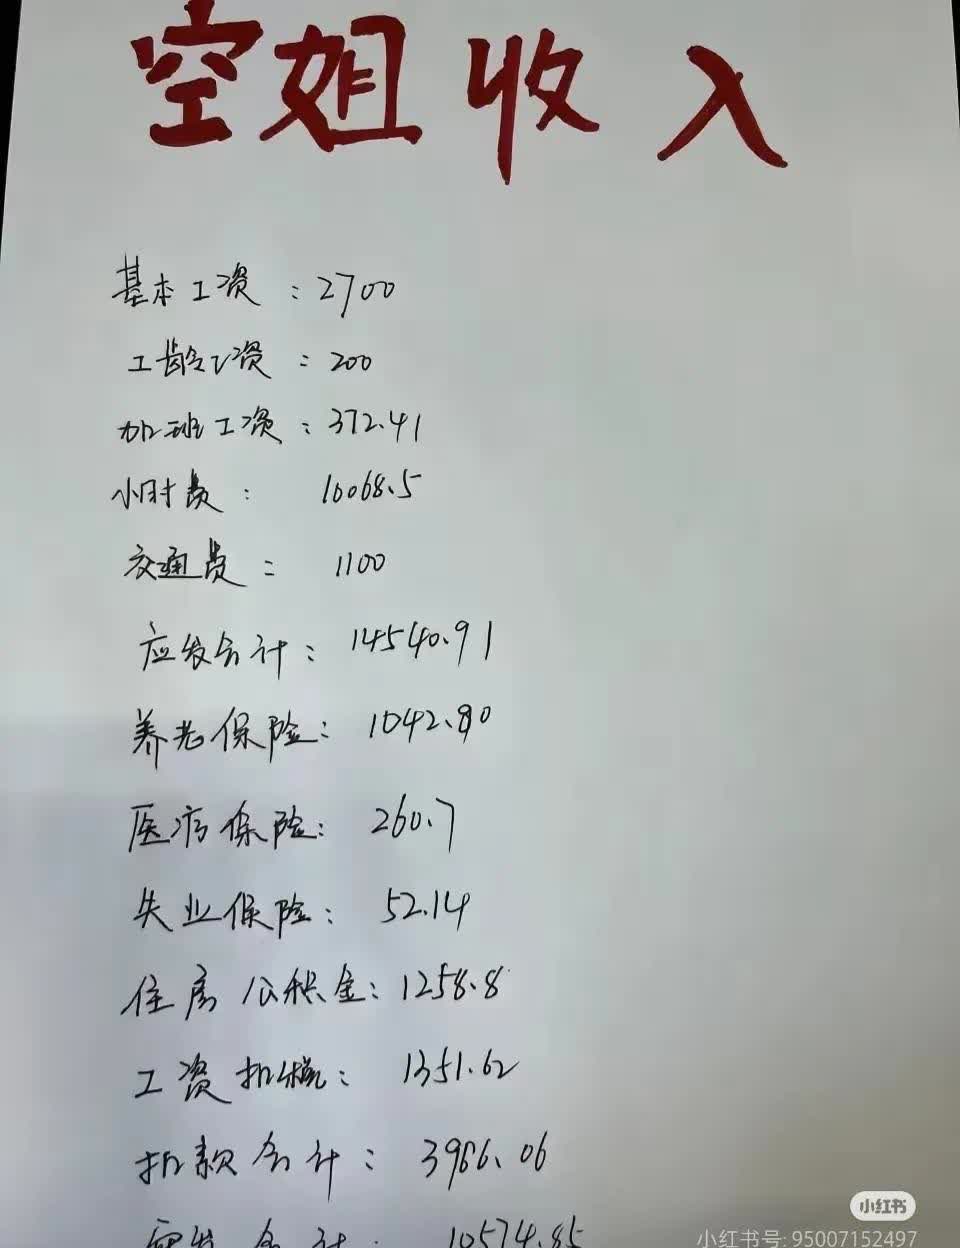 空姐收入
基本工资：2700
工龄工资：200
加班工资：372.41
小时费：10068.5
交通费：1100
应发合计：14540.91
养老保险：1042.80
医疗保险：260.7
失业保险：52.14
住房公积金：1258.8
工资扣税：1351.62
扣款合计：3966.06
实发合计：10574.85
小红书
小红书号: 95007152497